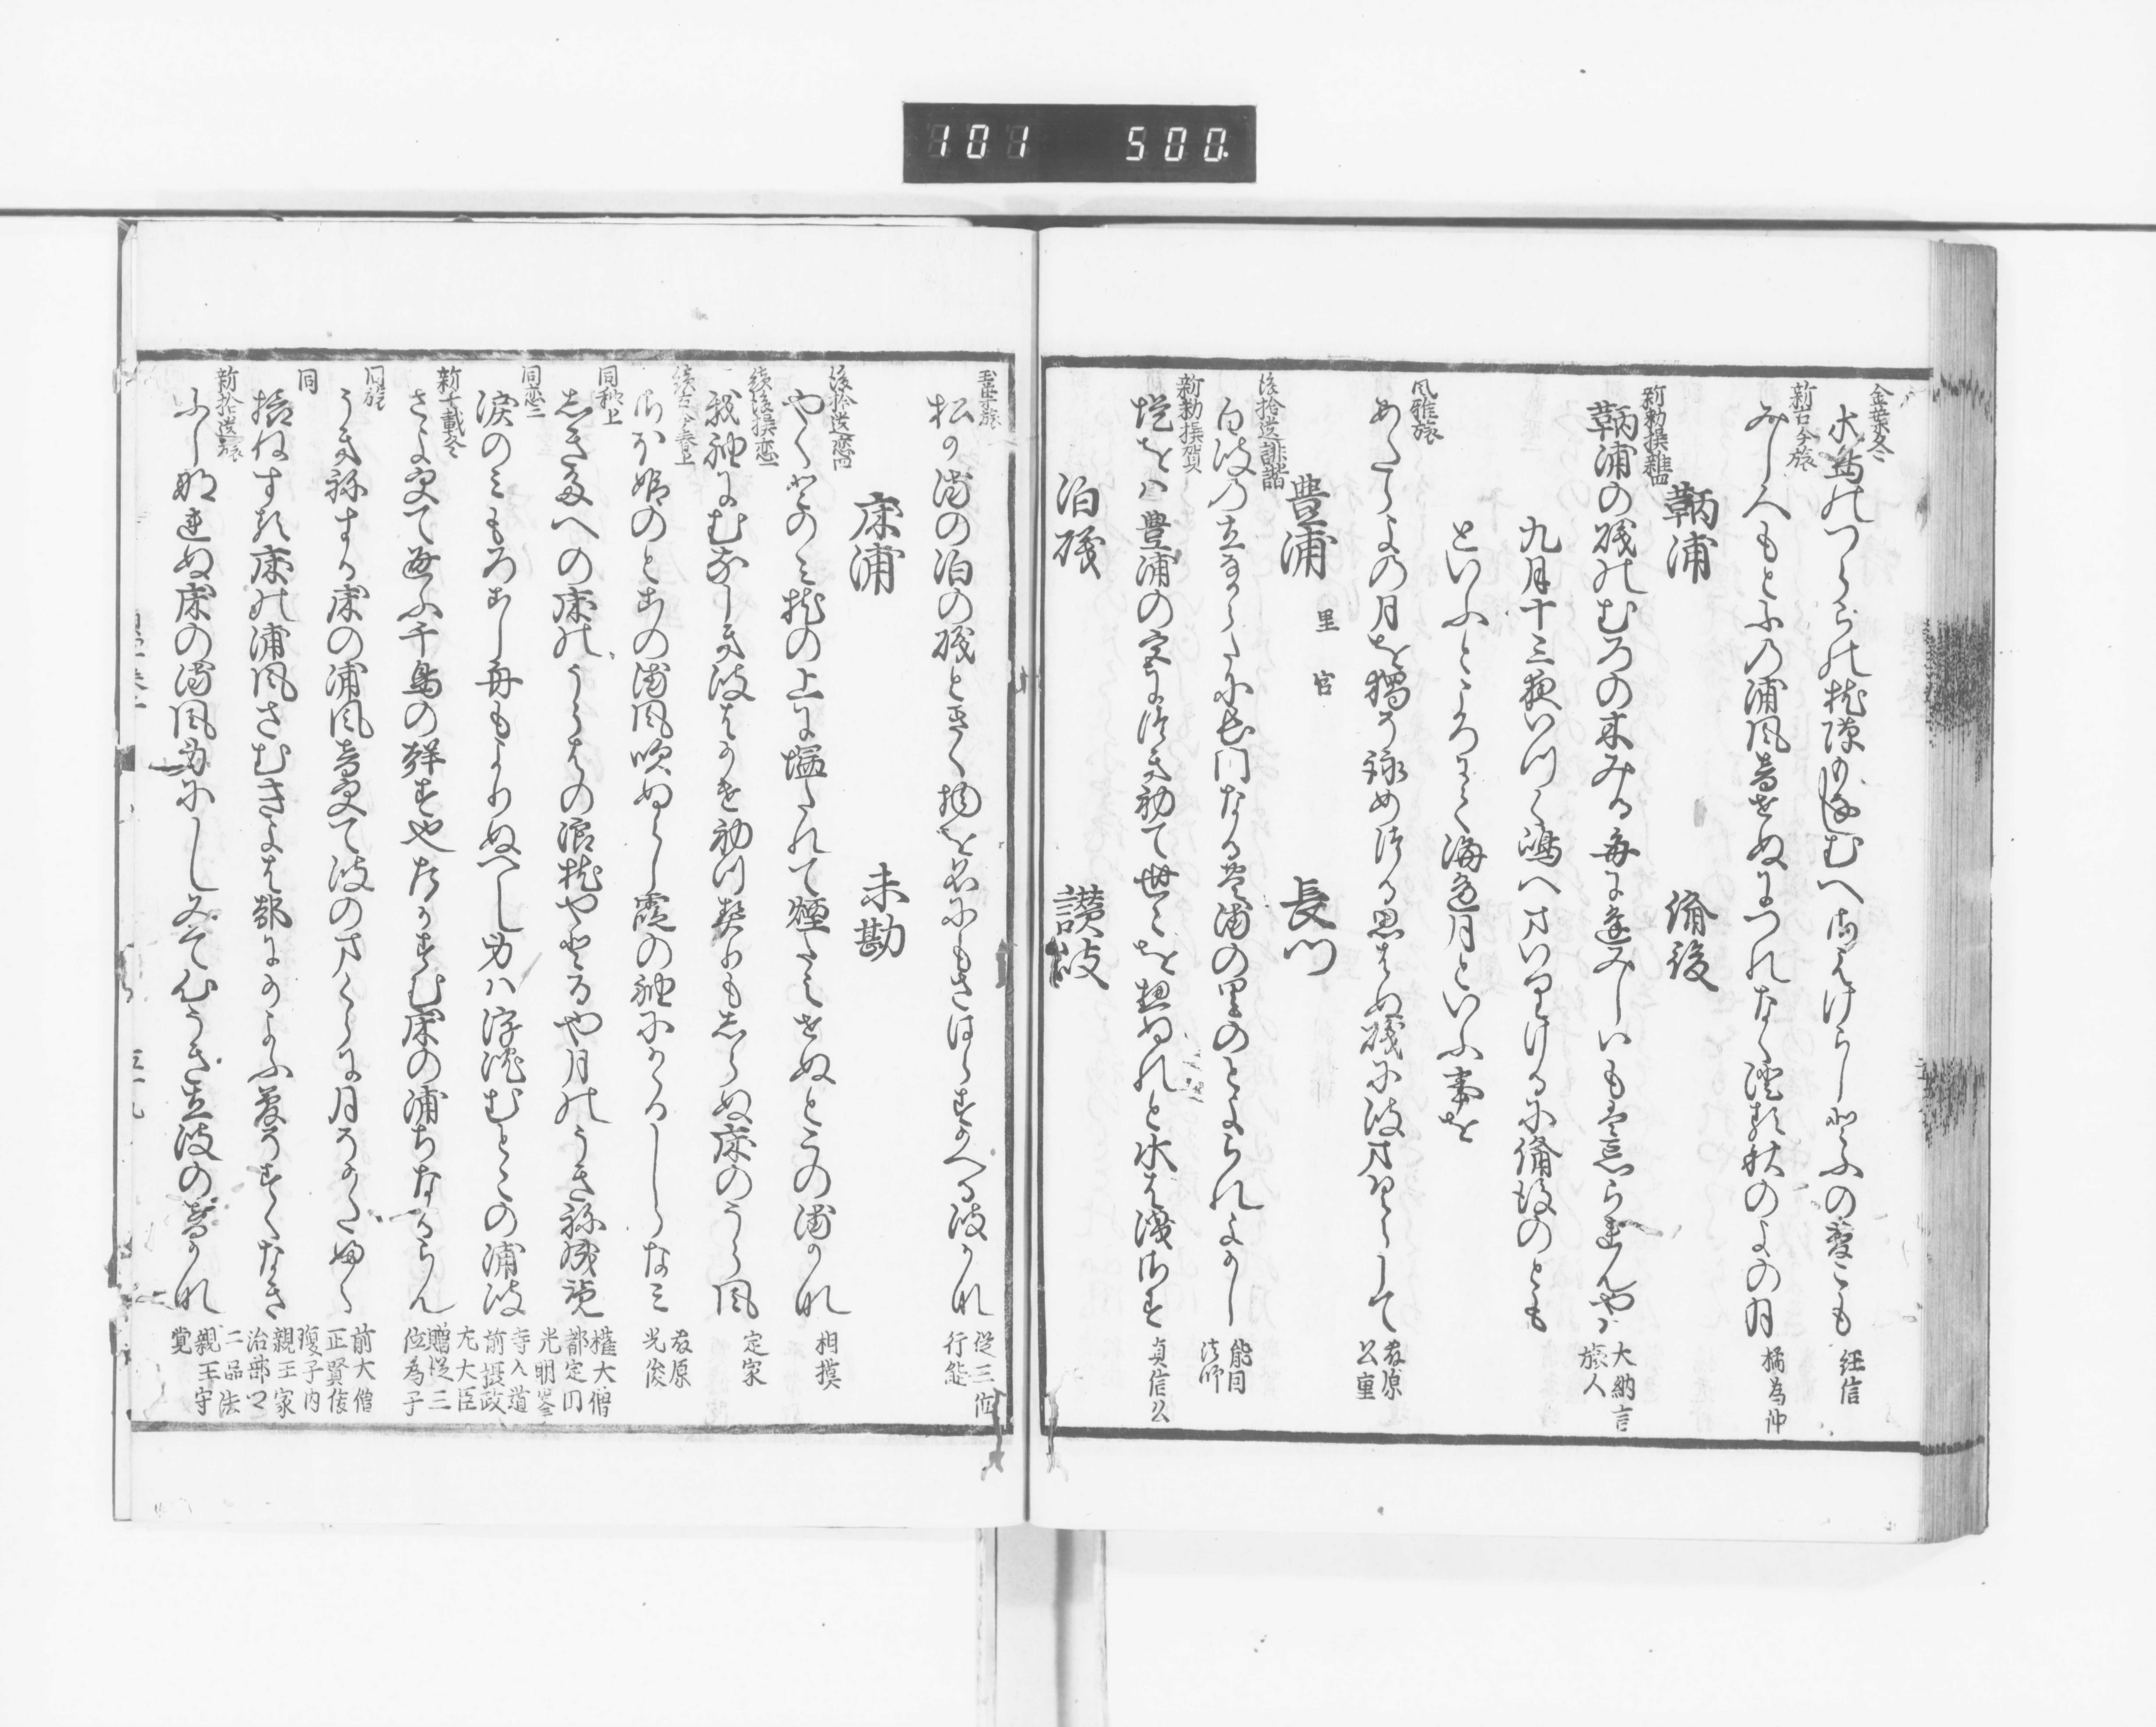 101 500
金葉冬
水鳥のつらゝの枕隙もなしむへさえけらしとふの菅こも 経信
新古今旅
みし人もとふの浦風音せぬにつれなく澄る秋のよの月 橘為仲
鞆浦 備後
新勅撰雑四
鞆浦の磯のむろの木みる毎に逢みしいもは忘られんやハ 大納言旅人
九月十三夜いつくしまへまいりけるに備後のとも
といふところにて海辺月といふ事を
風雅旅
あたらよの月を獨そ詠めつる思はぬ磯に波まくらして 藤原公重
豊浦 里 宮 長門
後拾遺誹諧
白波の立なからたに長門なる豊浦の里のとよられよかし 能因法師
新勅撰賀
堤をハ豊浦の宮につき初て世々を歴ぬれと水は洩さす 貞信公
泊磯 讃岐
玉葉旅
松か浦の泊の磯ときく物を名にもさはらすかへる波かな 従三位行能
床浦 未勘
後拾遺恋四
やくとのミ枕の上に塩たれて煙たえせぬとこの浦かな 相摸
続後撰恋一
我袖にむなしき波はかけ初つ契りもしらぬ床のうら風 定家
続古今春上
さほ姫のとこの浦風吹ぬらし霞の袖にかゝるしらなミ 藤原光俊
同秋上
しきたへの床のうらはの浪枕やとるや月のうき寝成覧 権大僧都定円
同恋二
涙のミもろこし舟もよりぬへし身ハ浮沈むとこの浦波 光明峯寺入道前摂政左大臣
新千載冬
さよ更て毎に千鳥の群すや友かすむ床の浦ちなるらん 贈従三位為子
同旅
うき寝する床の浦風音更て波のまくらに月そかたふく 前大僧正賢俊
同
旅ねする床の浦風さむきよは都にかよふ夢そすくなき 覆子内親王家治部卿
新拾遺旅
ふしなれぬ床の浦風身にしみて心うき立波の音かな 二品法親王守覚